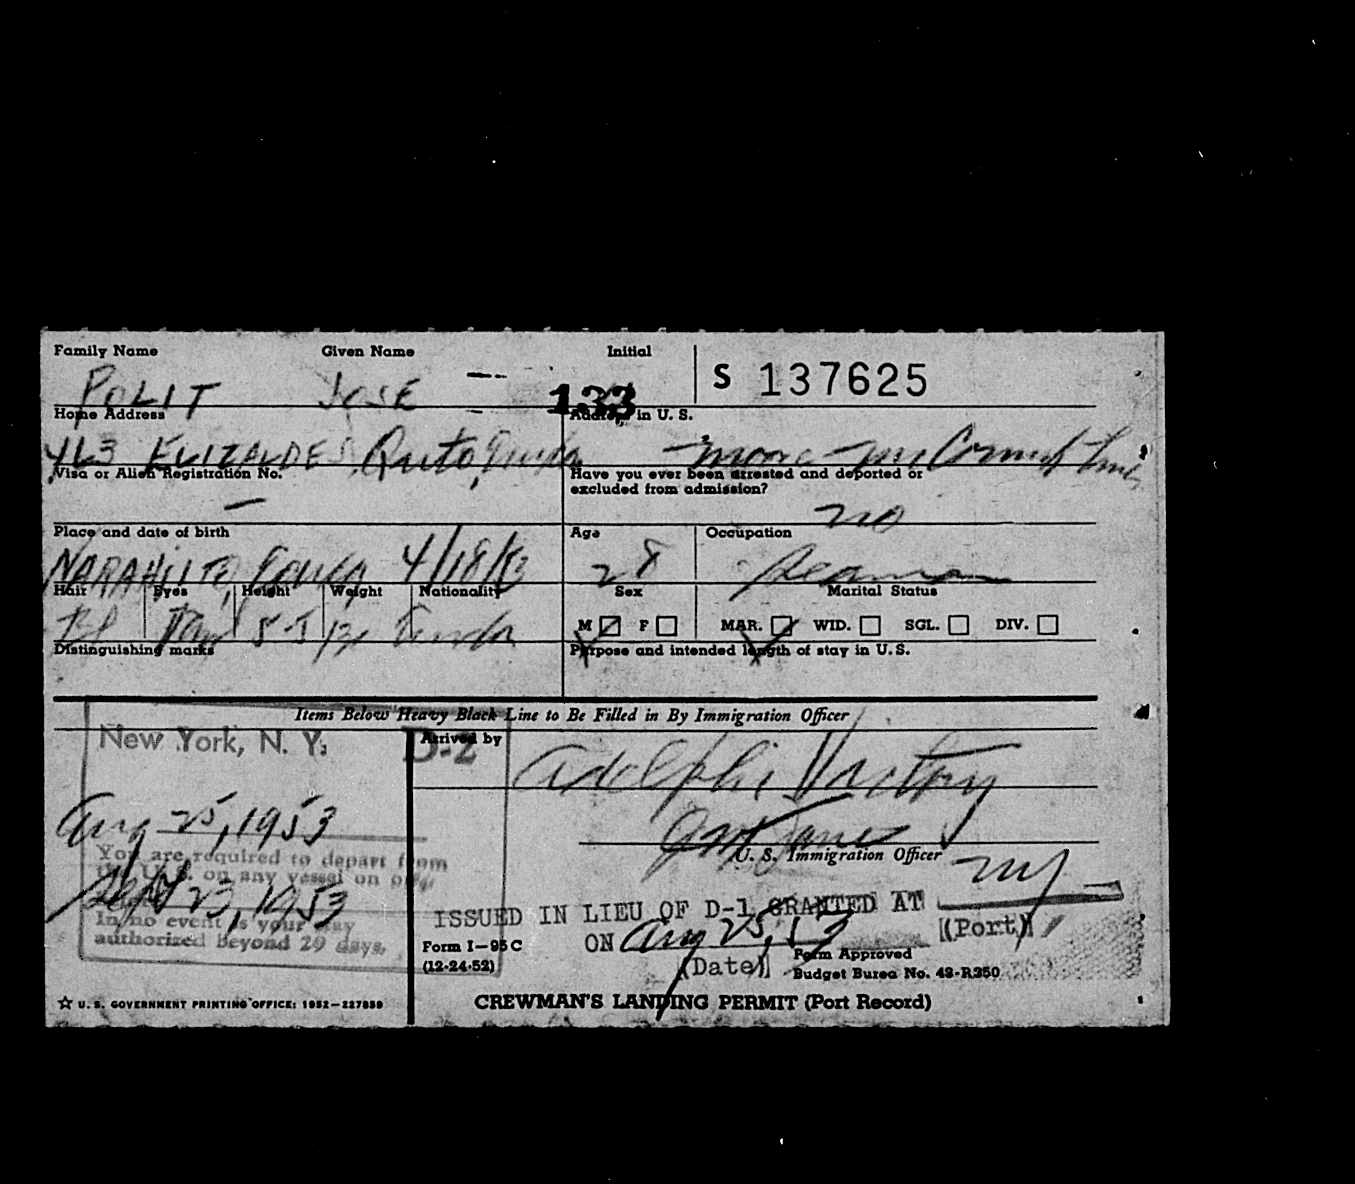 Family Name Given Name Initial
S 137625
POLIT JOSE —
133
Home Address Address in U. S.
463 ELIZALDE Quito Moore McCormick
Visa or Alien Registration No. Have you ever been arrested and deported or
excluded from admission?
— no
Place and date of birth Age Occupation
4/18/ 28 Seaman
Hair Eyes Height Weight Nationality Sex Marital Status
5-5
M F MAR. WID. SGL. DIV.
Distinguishing marks Purpose and intended length of stay in U. S.
Items Below Heavy Black Line to Be Filled in By Immigration Officer
New York, N. Y. D-2 Arrived by
Adelphi Victory
Aug 25, 1953
U. S. Immigration Officer
You are required to depart from
the U. S. on any vessel on or
Sept 23, 1953
In no event is your stay
authorized beyond 29 days.
ISSUED IN LIEU OF D-1 GRANTED AT NY
(Port)
ON Aug 25, 53
(Date)
Form I-95 C
(12-24-52)
Form Approved
Budget Bureau No. 43-R350
☆ U. S. GOVERNMENT PRINTING OFFICE: 1952—227859
CREWMAN'S LANDING PERMIT (Port Record)